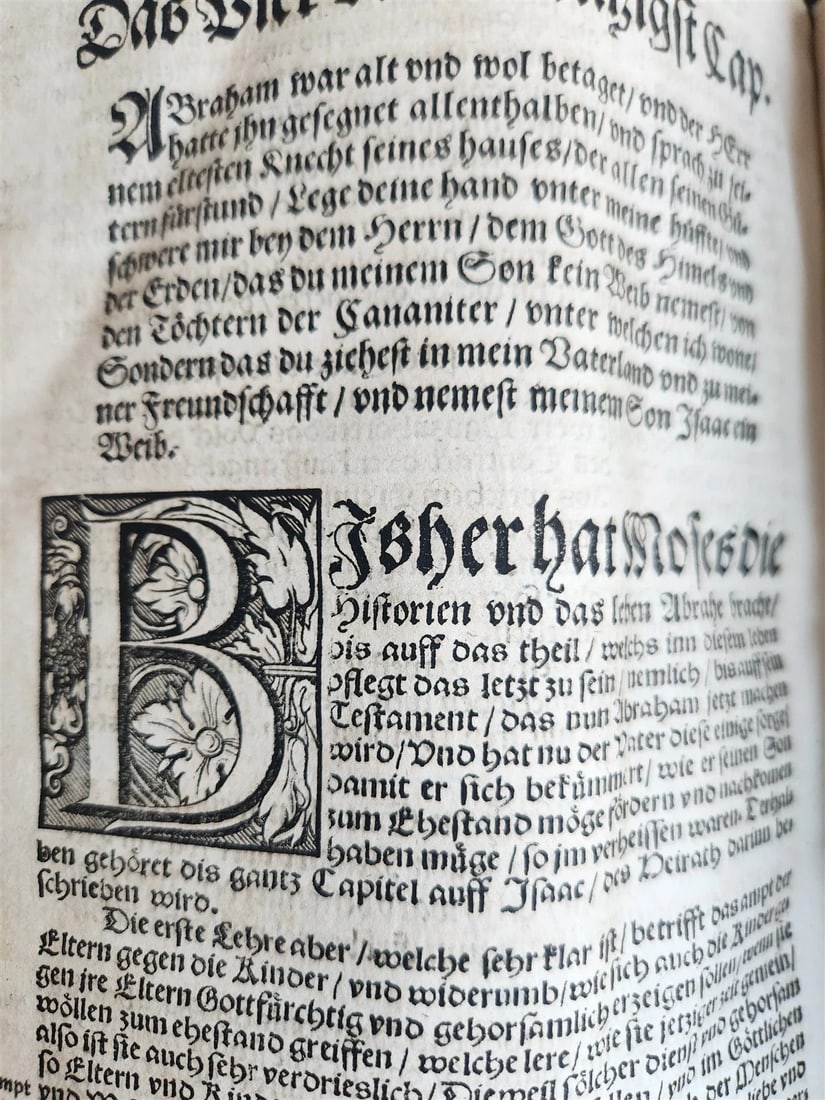 Das Vier zigst Cap.
ABraham war alt vnd wol betaget/ vnd der HErr
hatte jhn gesegnet allenthalben/ vnd sprach zu sei-
nem eltesten Knecht seines hauses/ der allen seinen Gü-
tern fürstund / Lege deine hand vnter meine hüffte/ vnd
schwere mir bey dem Herrn / dem Gott des Himels vnd
der Erden/ das du meinem Son kein Weib nemest/ von
den Töchtern der Cananiter / vnter welchen ich wone/
Sondern das du ziehest in mein Vaterland vnd zu mei-
ner Freundschafft / vnd nemest meinem Son Isaac ein
Weib.
BIsher hat Moses die
Historien vnd das leben Abrahe bracht/
bis auff das theil / welchs inn diesem leben
pflegt das letzt zu sein/ nemlich / bis auff sein
Testament / das nun Abraham jetzt machen
wird/ Vnd hat nu der Vater diese einige sorge/
damit er sich bekümmert/ wie er seinen Son
zum Ehestand möge fördern vnd nachkomen
haben müge / so jm verheissen waren. Derhal-
ben gehöret dis gantz Capitel auff Isaac/ des Heirath darinn be-
schrieben wird.
Die erste Lehre aber / welche sehr klar ist/ betrifft das ampt der
Eltern gegen die Kinder / vnd widerumb/ wie sich auch die Kinder ge-
gen jre Eltern Gottfürchtig vnd gehorsamlich erzeigen sollen/ wenn sie
wöllen zum ehestand greiffen / welche lere / wie sie jetziger zeit gemein/
also ist sie auch sehr verdrieslich/ Dieweil solcher dienst vnd gehorsam
so Eltern vnd vnd im Göttlichen
mpt vnd der Menschen
liebe vnd